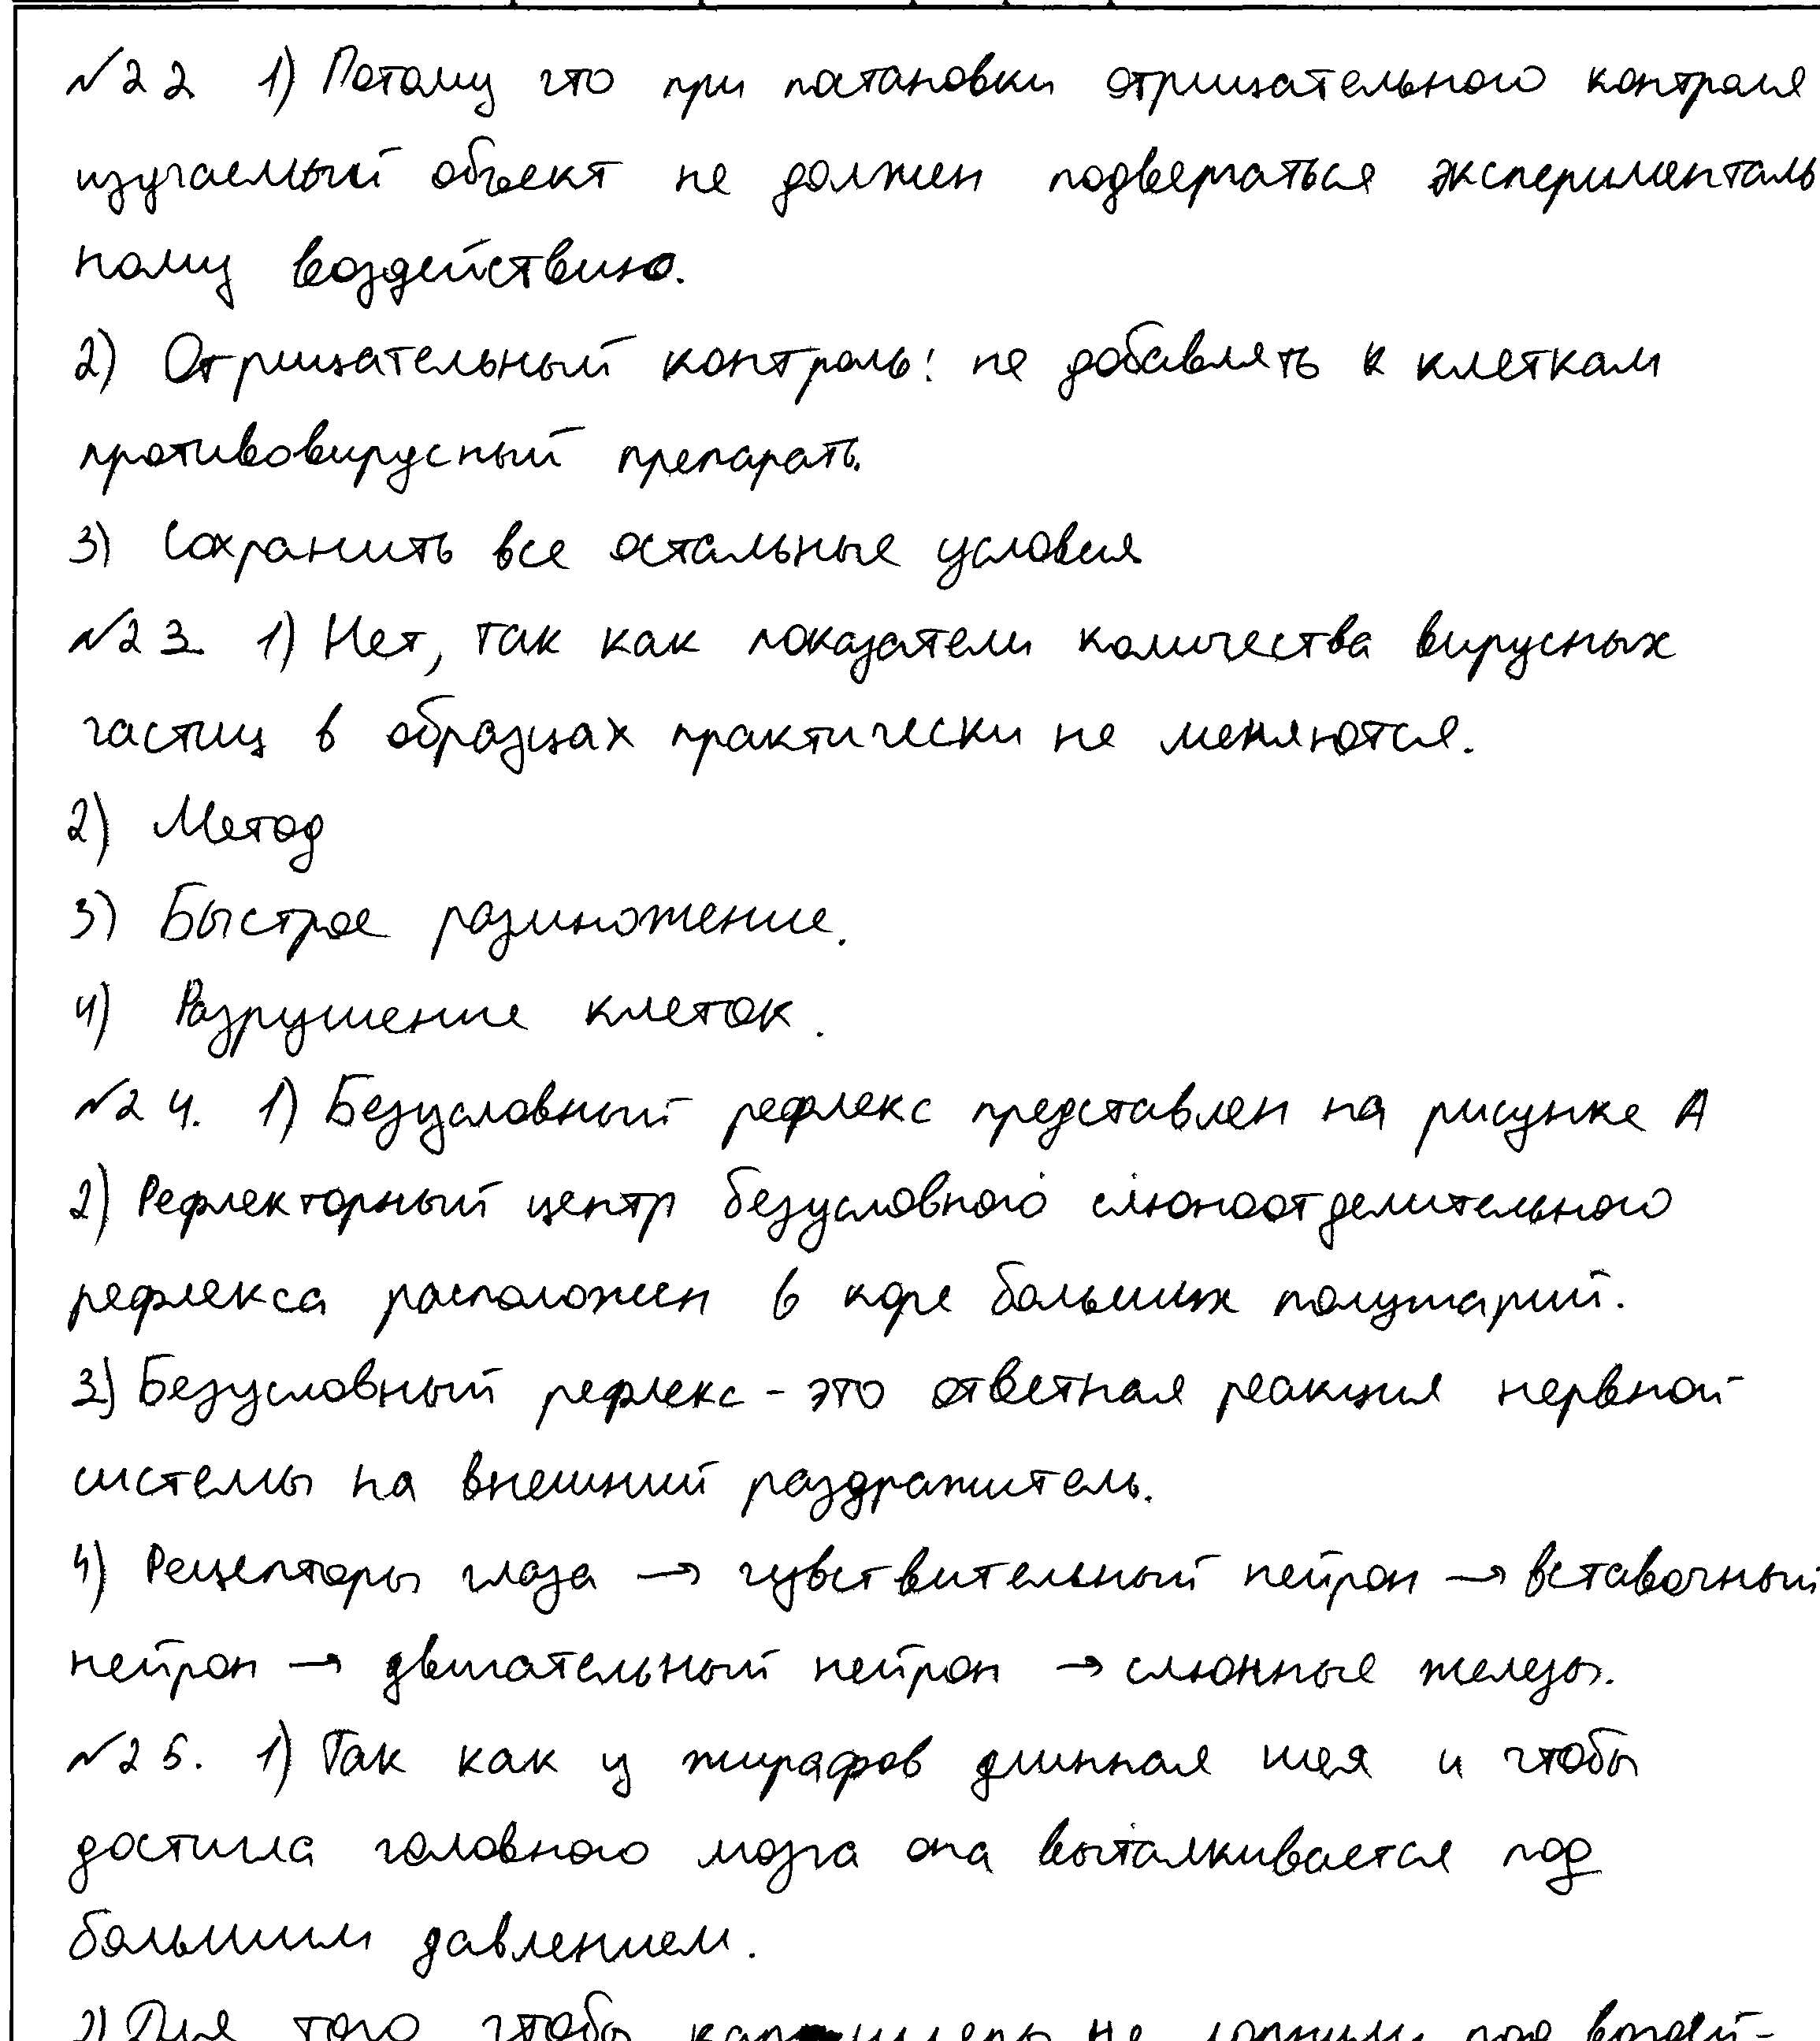 №22 1) Потому что при патановки отрицательного контроля
изучаемый объект не должен подвергаться эксперименталь
ному воздействию.
2) Отрицательный контроль: не добавлять к клеткам
противовирусный препарать.
3) Сохранить все остальные условия
№23 1) Нет, так как показатели количества вирусных
частиц в образцах практически не меняются.
2) Метод
3) Быстрое размножение.
4) Разрушение клеток.
№24. 1) Безусловный рефлекс представлен на рисунке А
2) Рефлекторный центр безусловного слюноотделительного
рефлекса расположен в коре больших полушарий.
3) Безусловный рефлекс - это ответная реакция нервной
системы на внешний раздражитель.
4) Рецепторы глаза → чувствительный нейрон → вставочный
нейрон → двигательный нейрон → слюнные железы.
№25. 1) Так как у жирафов длинная шея и чтобы
достигла головного мозга она выталкивается под
большим давлением.
2) Для того чтобы не под воздей-